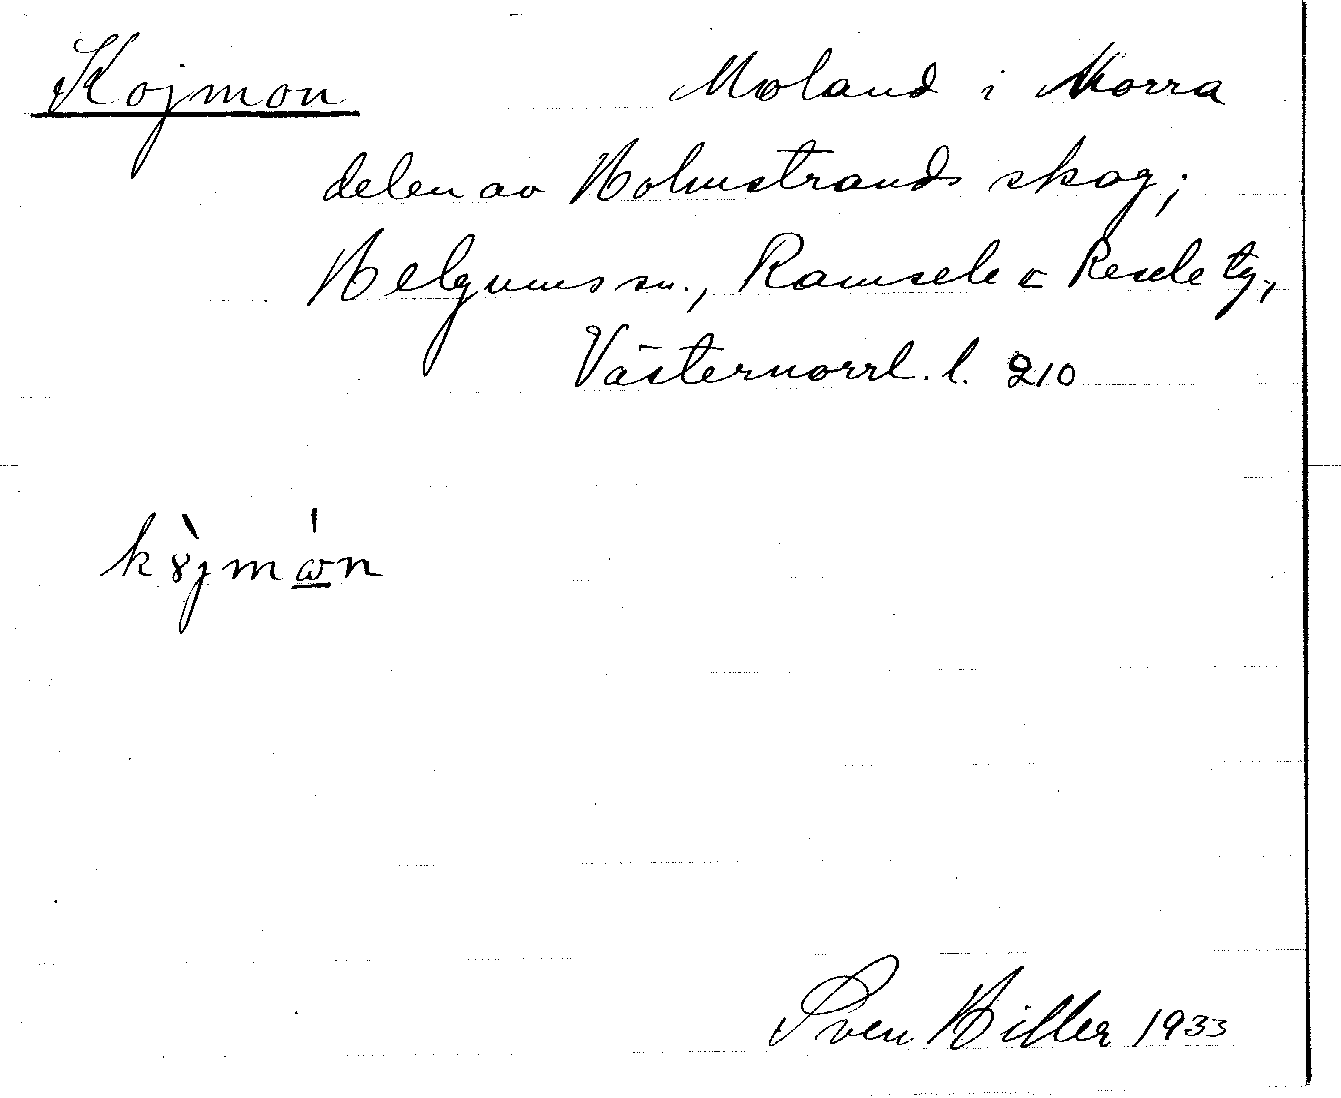 Kojmon Moland i Norra
delen av Holmstrands skog;
Helgums sn., Ramsele o Resele tg,
Västernorrl. l. 210
k8̀jmώn
Sven Hiller 1933